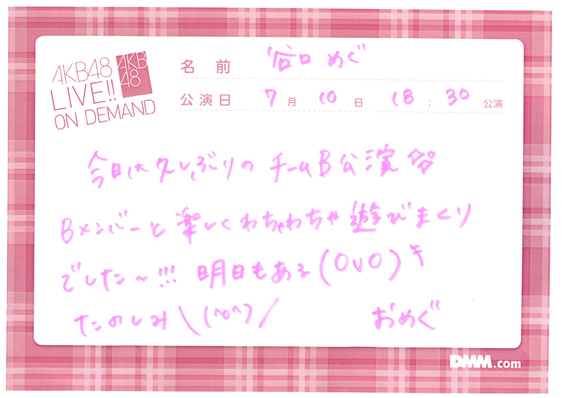 AKB48
LIVE!!
ON DEMAND
AKB
48
名 前 谷口 めぐ
公演日 7月 10日 18:30公演
今日は久しぶりのチームB公演
Bメンバーと楽しくわちゃわちゃ遊びまくり
でした〜!!! 明日もある(OvO)
たのしみ\(^o^)/ おめぐ
DMM.com